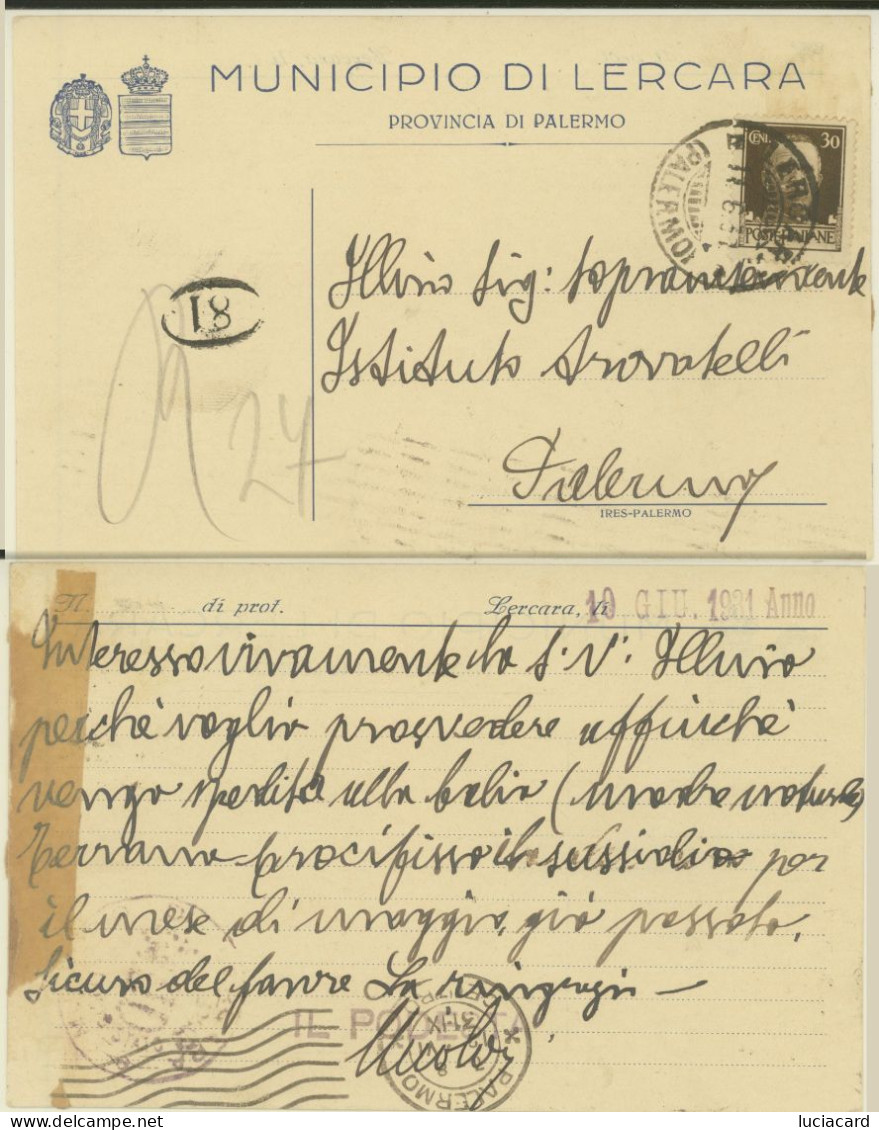 MUNICIPIO DI LERCARA
PROVINCIA DI PALERMO
CENT. 30
POSTE ITALIANE
(PALERMO)
Ill/mo Sig: Soprantendente
Istituto Trovatelli
Palermo
IRES-PALERMO
18
27
N. di prot. Lercara, li 10 GIU. 1931 Anno
Interesso vivamente la S. V. Ill/ma
perchè voglia provvedere affinchè
venga spedita alla balia (madre naturale)
Terrana Crocifissa il sussidio per
il mese di maggio, già passato.
Sicuro del favore La ringrazio
IL PODESTÀ
PALERMO
luciacard